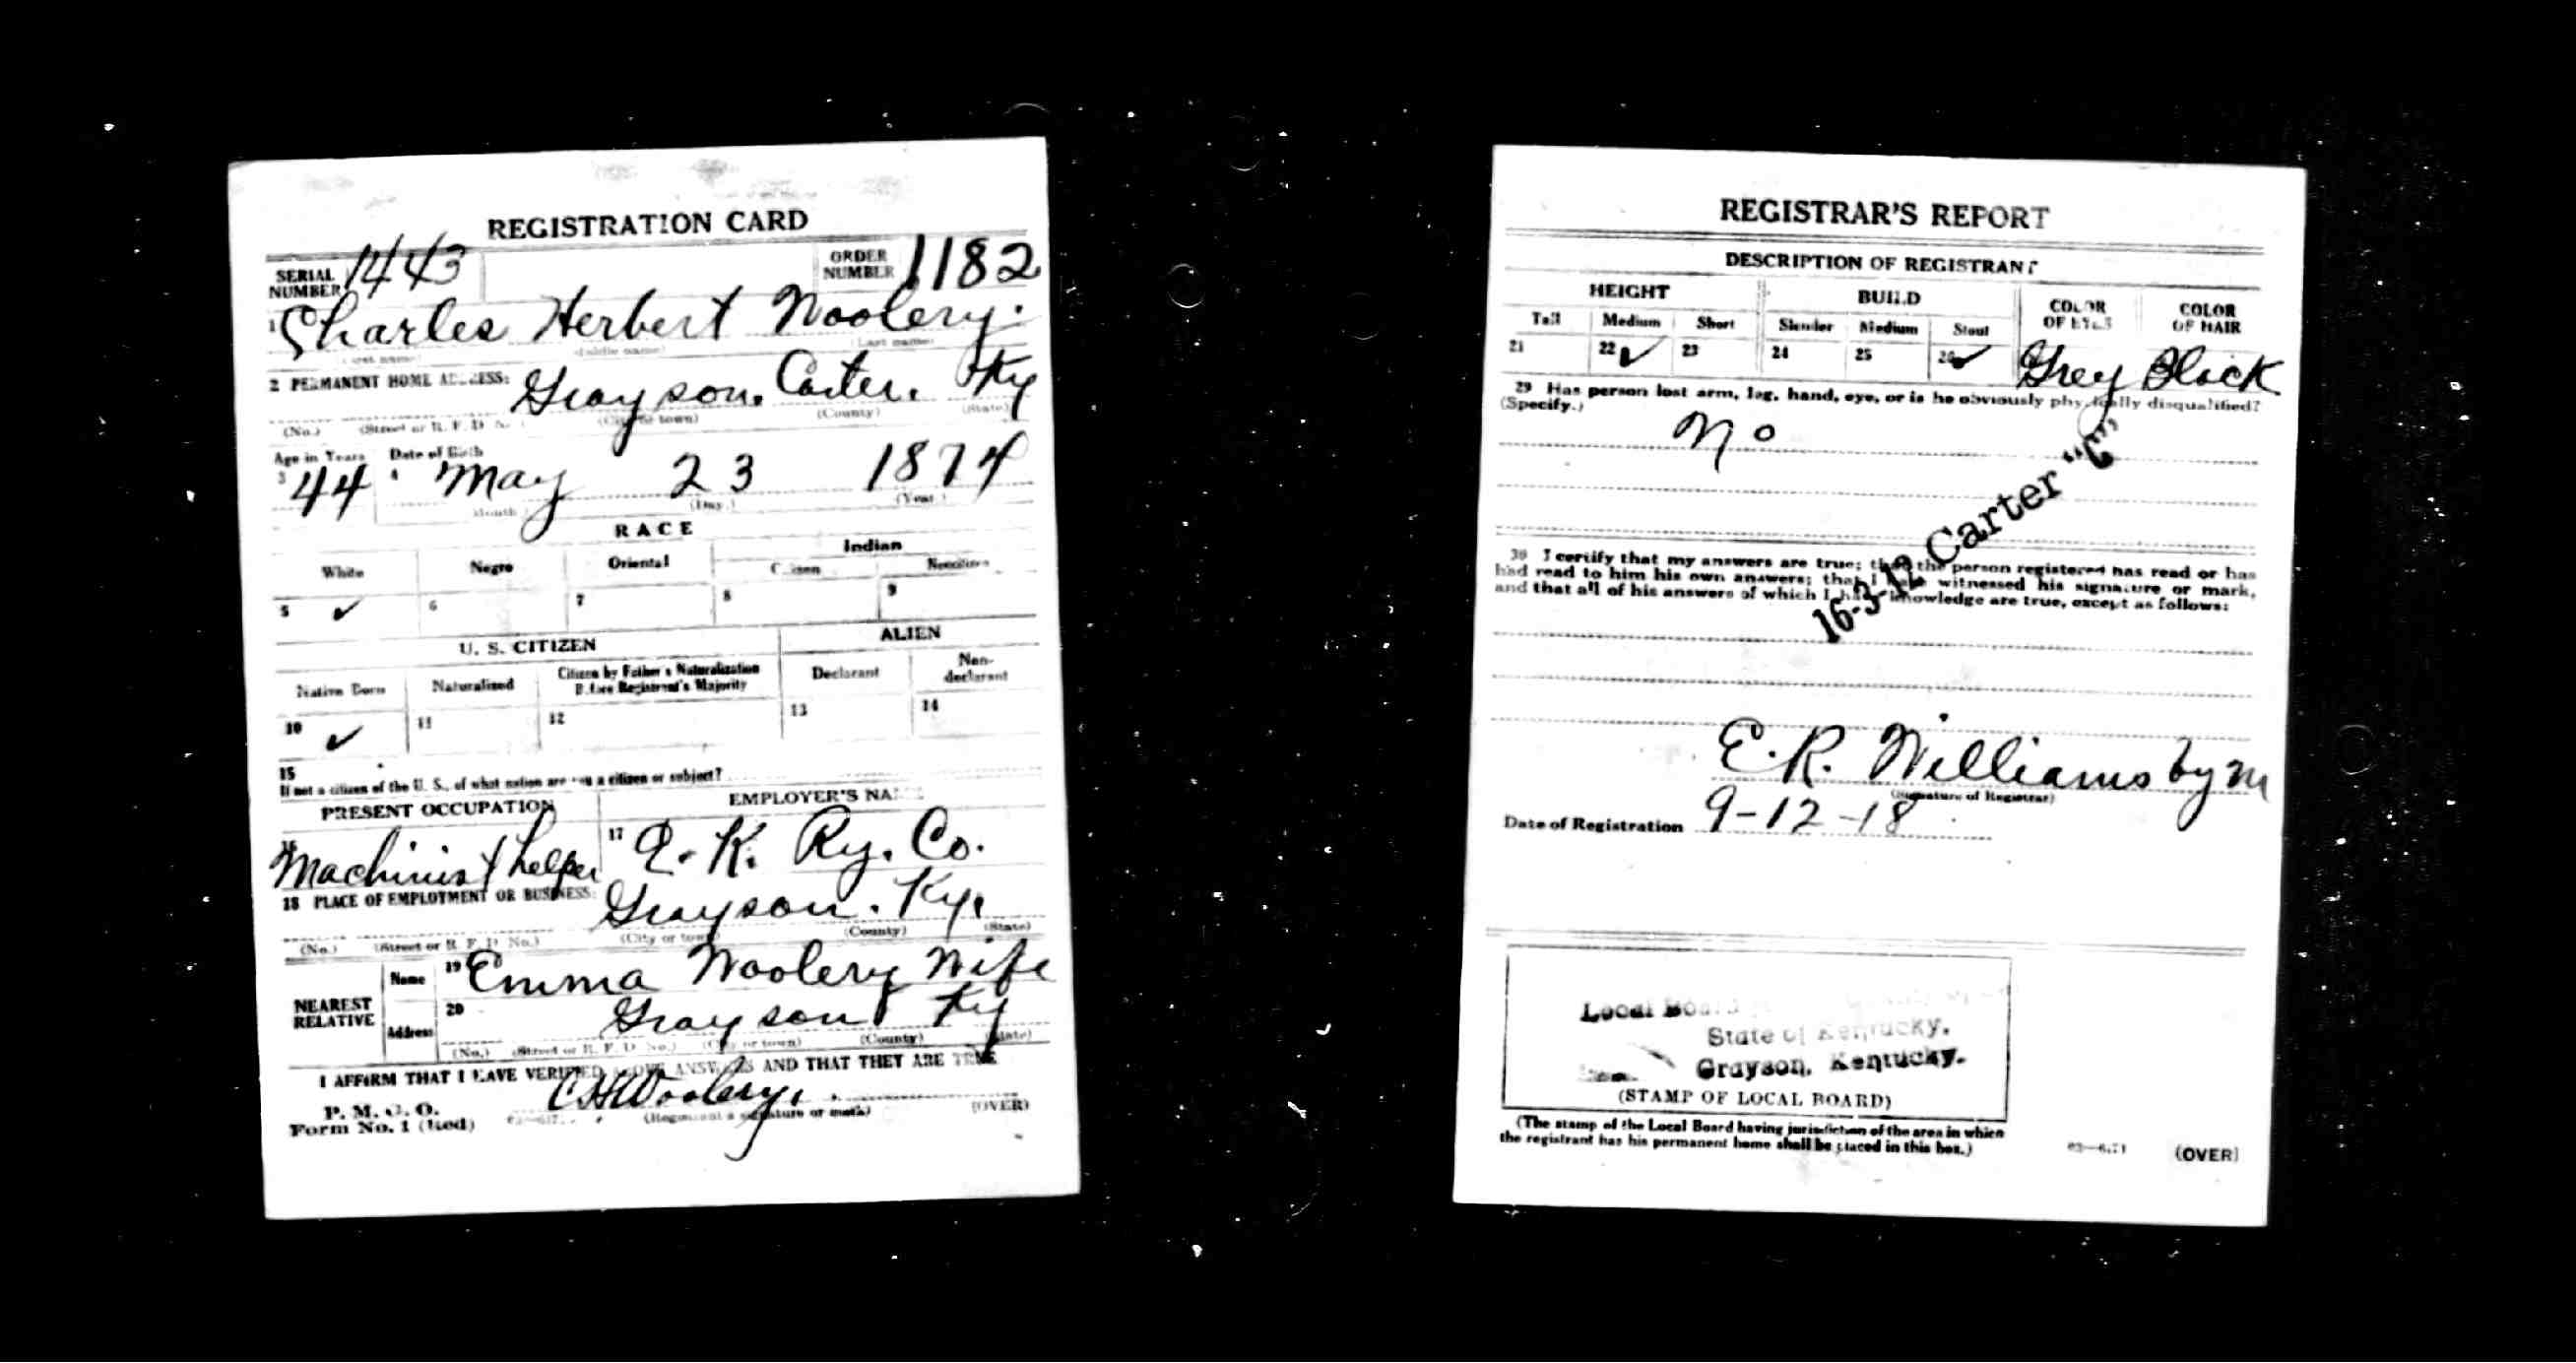 REGISTRATION CARD
SERIAL NUMBER 1443 ORDER NUMBER 1182
1 Charles Herbert Woolery.
(First name) (Middle name) (Last name)
2 PERMANENT HOME ADDRESS: Grayson. Carter. Ky
(No.) (Street or R. F. D. No.) (City or town) (County) (State)
Age in Years Date of Birth
3 44 4 May 23 1874
(Month) (Day.) (Year.)
RACE
White Negro Oriental Indian
Citizen Noncitizen
5 ✓ 6 7 8 9
U. S. CITIZEN ALIEN
Native Born Naturalized Citizen by Father's Naturalization Before Registrant's Majority Declarant Non-declarant
10 ✓ 11 12 13 14
15
If not a citizen of the U. S., of what nation are you a citizen or subject?
PRESENT OCCUPATION EMPLOYER'S NAME
16 Machinist helper 17 E. K. Ry. Co.
18 PLACE OF EMPLOYMENT OR BUSINESS: Grayson. Ky.
(No.) (Street or R. F. D. No.) (City or town) (County) (State)
NEAREST RELATIVE
Name 19 Emma Woolery Wife
Address 20 Grayson Ky
(No.) (Street or R. F. D. No.) (City or town) (County) (State)
I AFFIRM THAT I HAVE VERIFIED ABOVE ANSWERS AND THAT THEY ARE TRUE
P. M. G. O.
Form No. 1 (Red) C H Woolery.
(Registrant's signature or mark) (OVER)
REGISTRAR'S REPORT
DESCRIPTION OF REGISTRANT
HEIGHT BUILD COLOR OF EYES COLOR OF HAIR
Tall Medium Short Slender Medium Stout
21 22 ✓ 23 24 25 26 ✓ Grey Black
29 Has person lost arm, leg, hand, eye, or is he obviously physically disqualified?
(Specify.)
No
16-3-12 Carter "C"
30 I certify that my answers are true; that the person registered has read or has
had read to him his own answers; that I have witnessed his signature or mark,
and that all of his answers of which I have knowledge are true, except as follows:
E. R. Williams by m
(Signature of Registrar)
Date of Registration 9-12-18
Local Board
State of Kentucky.
Grayson, Kentucky.
(STAMP OF LOCAL BOARD)
(The stamp of the Local Board having jurisdiction of the area in which
the registrant has his permanent home shall be placed in this box.)
(OVER)